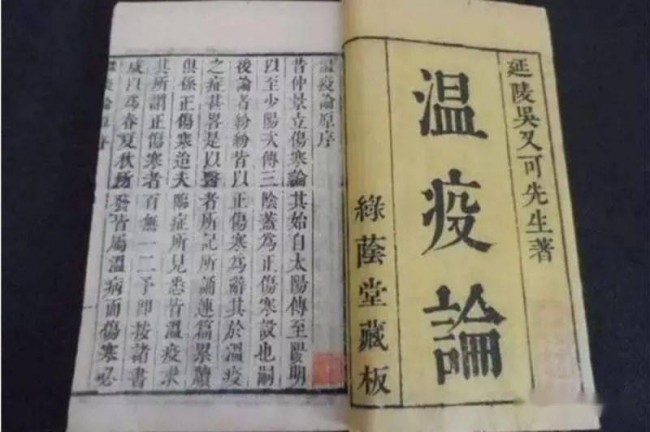 延陵吳又可先生著
溫疫論
綠蔭堂藏板
溫疫論原序
昔仲景立傷寒論其始自太陽傳至陽明
以至少陽次傳三陰蓋為正傷寒設也嗣
後論者紛紛皆以正傷寒為辭其於溫疫
之症甚畧是以醫者所記所誦連篇累牘
俱係正傷寒迨夫臨症所見悉皆溫疫求
其所謂正傷寒者百無一二予即按諸書
咸以為春夏秋所發皆屬溫病而傷寒必